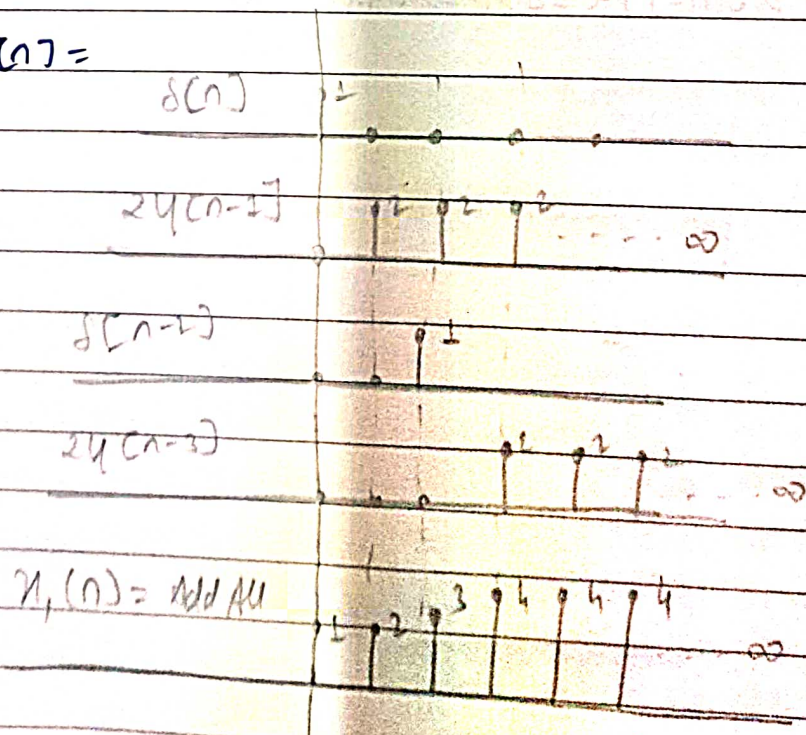 [n] =
δ[n] 1
2u[n-1] 2 2 2 ..... ∞
δ[n-2] 1
2u[n-3] 2 2 2 ..... ∞
x₁(n) = Add All 1 2 3 4 4 4 ∞